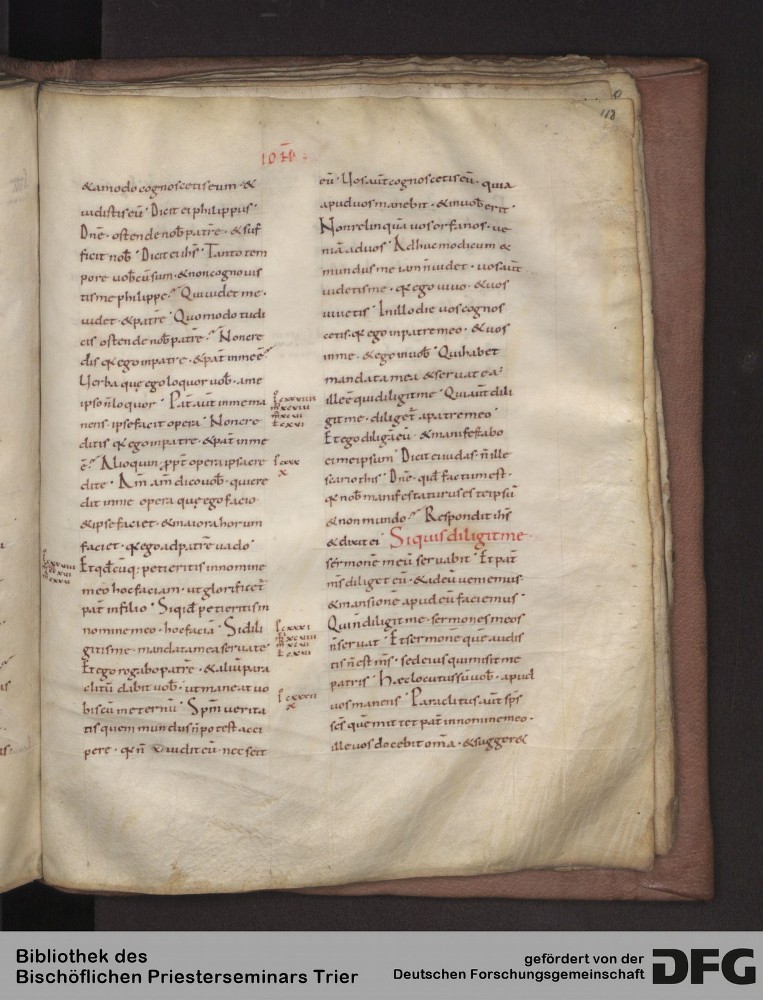 118
IOH
& amodo cognoscetis eum · &
uidistis eū · Dicit ei philippus ·
Dn̄e · ostende nob̄ patrē · & suf
ficit nob̄ · Dicit ei ih̄s · Tanto tem
pore uob̄cū sum · & non cognouis
tis me philippe? Qui uidet me ·
uidet & patrē · Quomodo tu di
cis ostende nob̄ patrē? Non cre
dis q̄ ego in patre · & pat̄ in me ē?
Uerba quę ego loquor uob̄ · a me
ipso n̄ loquor · Pat̄ aūt in me ma
nens ipse facit opera · Non cre
ditis q̄ ego in patre · & pat̄ in me
ē? Alioquin ꝓpt̄ opera ipsa cre
dite · Am̄ am̄ dico uob̄ · qui cre
dit in me opera quę ego facio ·
& ipse faciet · & maiora horum
faciet · q̄ ego ad patrē uado ·
Et qd̄cūq; petieritis in nomine
meo hoc faciam · ut glorificet̄
pat̄ in filio · Si qid̄ petieritis in
nomine meo · hoc faciā · Si dili
gitis me · mandata mea seruate ·
Et ego rogabo patrē · & aliū para
clitū dabit uob̄ · ut maneat uo
biscū in eternū · Sp̄m uerita
tis quem mundus n̄ potest acci
pere · q̄ n̄ uidit eū · nec scit
eū · Uos aūt cognoscetis eū · quia
apud uos manebit · & in uob̄ erit ·
Non relinquā uos orfanos · ue
niā ad uos · Adhuc modicum &
mundus me iam n̄ uidet · uos aūt
uidetis me · q̄ ego uiuo · & uos
uiuetis · In illo die uos cognos
cetis · q̄ ego in patre meo · & uos
in me · & ego in uob̄ · Qui habet
mandata mea & seruat ea ·
ille ē qui diligit me · Qui aūt dili
git me · diliget̄ a patre meo ·
Et ego diligā eū · & manifestabo
ei me ipsum · Dicit ei iudas · n̄ ille
scariothis · Dn̄e · quid factum est ·
q̄ nob̄ manifestaturus es te ipsū
& non mundo? Respondit ih̄s
& dixit ei · Si quis diligit me ·
sermonē meū seruabit · Et pat̄
m̄s diliget eū · & ad eū ueniemus ·
& mansionē apud eū faciemus ·
Qui n̄ diligit me · sermones meos
n̄ seruat · Et sermonē quē audis
tis n̄ est m̄s · sed eius qui misit me
patris · Hæc locutus sū uob̄ · apud
uos manens · Paraclitus aūt sp̄s
sc̄s quē mittet pat̄ in nomine meo ·
ille uos docebit om̄a · & sugger&
Bibliothek des
Bischöflichen Priesterseminars Trier
gefördert von der
Deutschen Forschungsgemeinschaft
DFG